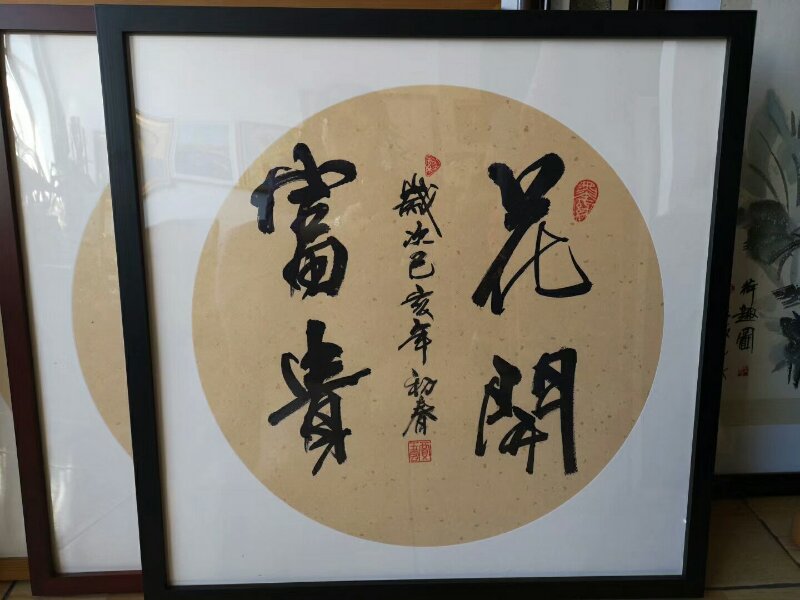 花開
富貴
歲次己亥年初春
荷趣圖